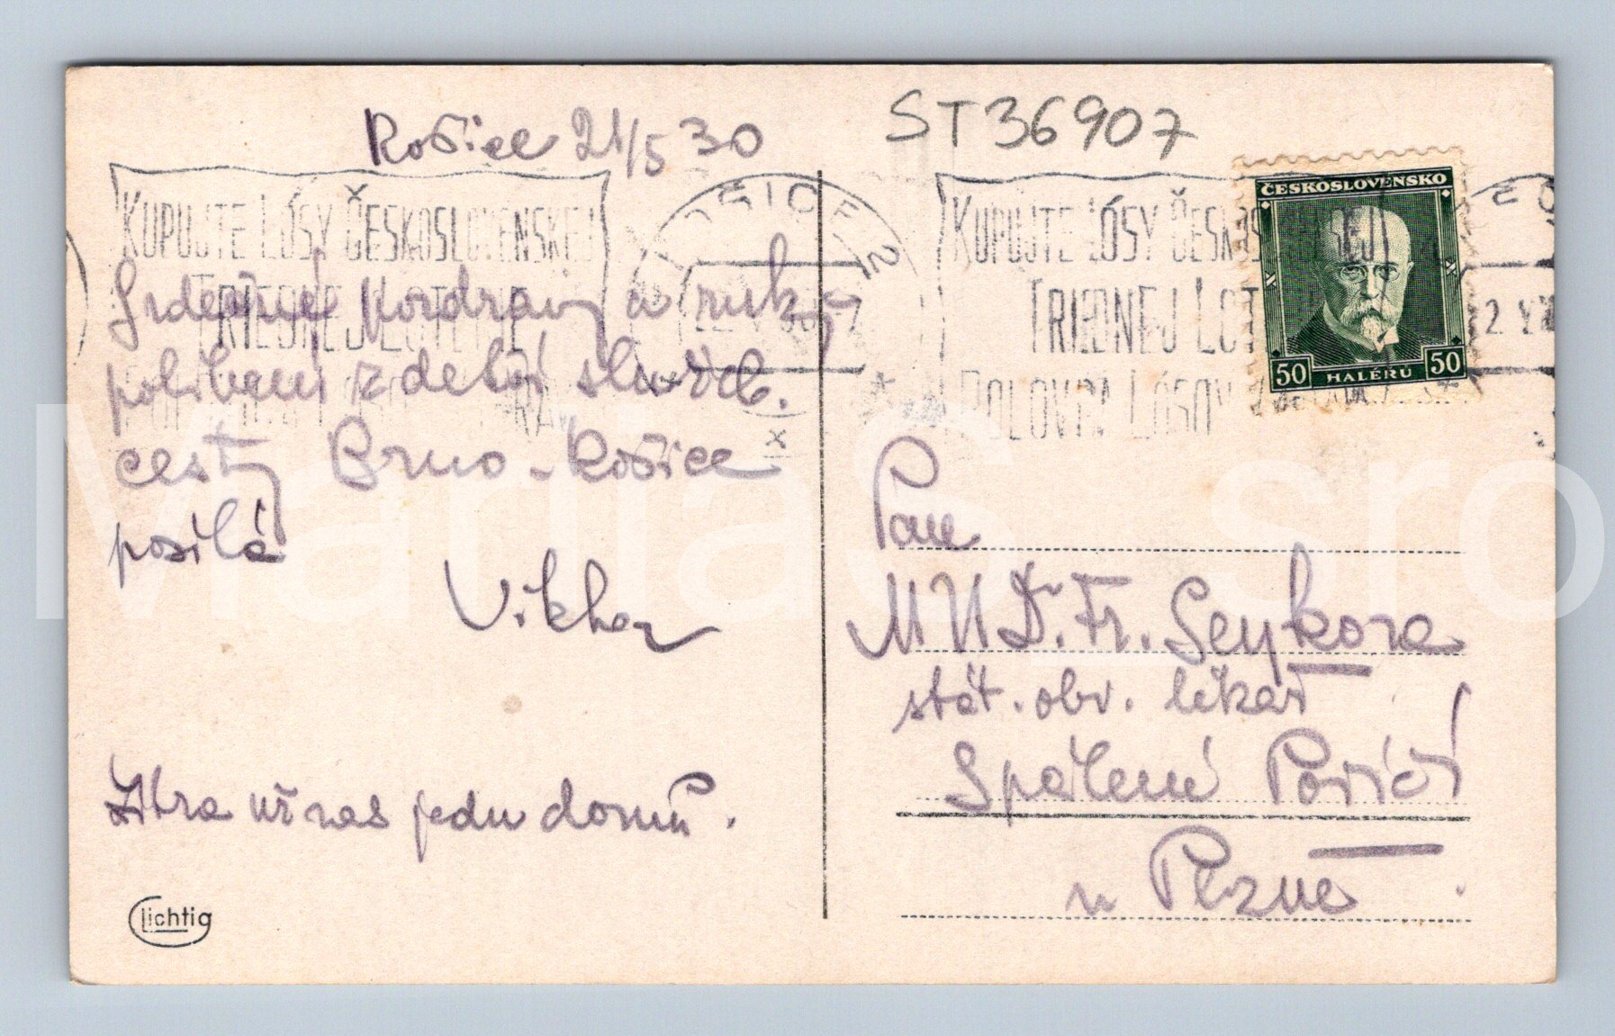 Košice 21/5 30
ST36907
KUPUJTE LÓSY ČESKOSLOVENSKEJ
TRIEDNEJ LOTERIE
KOŠICE 2
Srdečné pozdravy a ruky
políbení z delší služeb.
cesty Brno - Košice
posílá
Zítra už zas jedu domů.
Lichtig
KUPUJTE LÓSY ČESKOSLOVENSKEJ
TRIEDNEJ LOT
POLOVICA LÓSOV
ČESKOSLOVENSKO
50 HALÉŘŮ 50
Pan
MUDr. Fr. Seykora
stát. obv. lékař
Spálené Poříčí
u Plzně
Marias sro